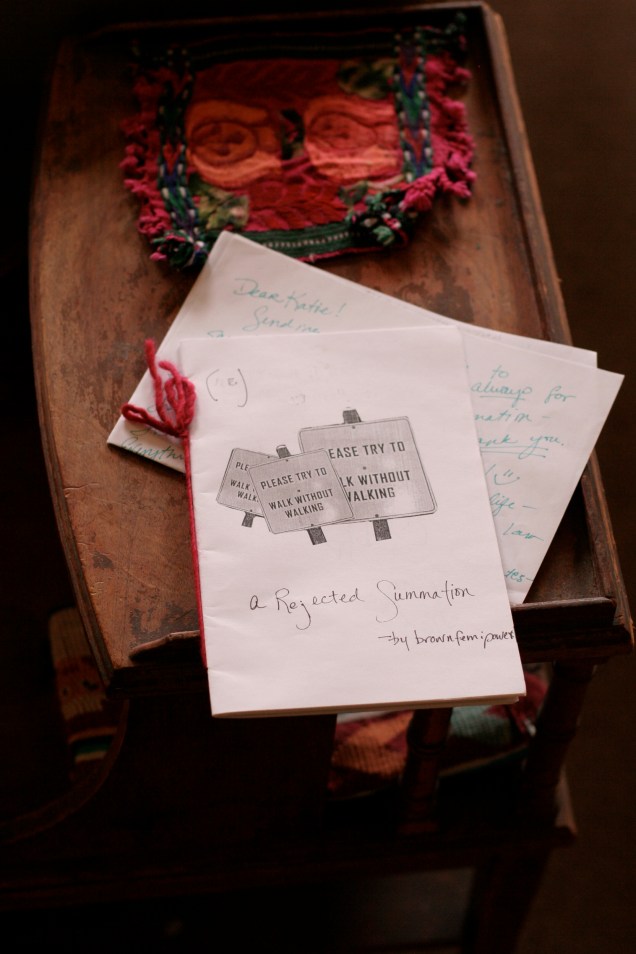 Dear Katie!
Sending
to
always for
thank you.
life-
Law
PLEASE TRY TO
WALK WITHOUT
WALKING
EASE TRY TO
LK WITHOUT
WALKING
PLE
WALK
WALK
a Rejected Summation
-by brownfemipower